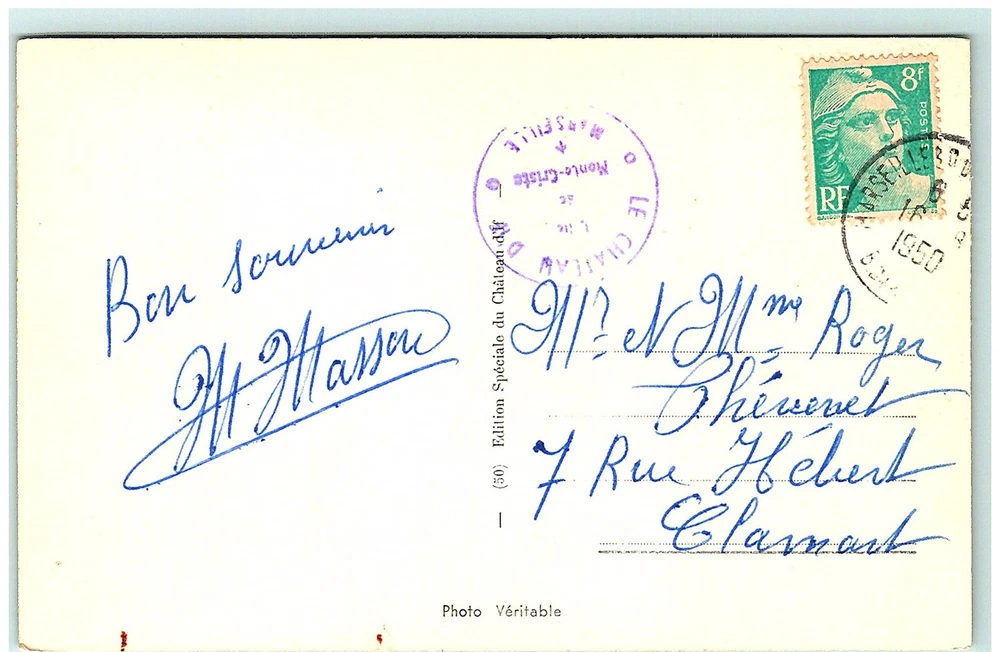 Bon souvenir
M Masson
LE CHATEAU D'IF
MARSEILLE
Monte-Cristo
de
(50) Edition Spéciale du Château d'If
8f
POST
RF
MARSEILLE
1950
Mr. et Mme Roger
Thévenet
7 Rue Hébert
Clamart
Photo Véritable